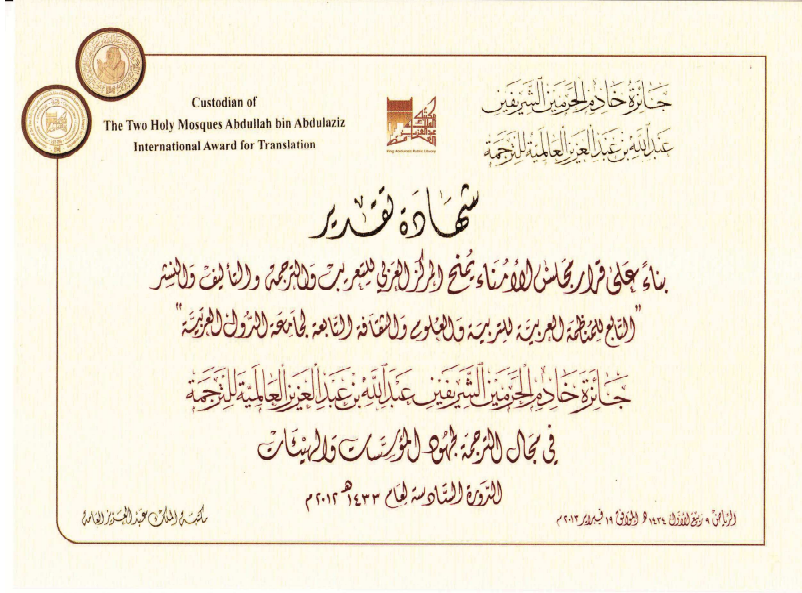 Custodian of
The Two Holy Mosques Abdullah bin Abdulaziz
International Award for Translation
جَائِزَة خَادِم الحَرَمَين الشَّرِيفَين
عَبدالله بن عَبدالعَزيز العَالَمِيَّة للتَّرجَمَة
شهادة تقدير
بناءً على قرار مجلس الأمناء يُمنح المركز العربي للتعريب والترجمة والتأليف والنشر
"التابع للمنظمة العربية للتربية والعلوم والثقافة التابعة لجامعة الدول العربية"
جَائِزَة خَادِم الحَرَمَين الشَّرِيفَين عَبدالله بن عَبدالعَزيز العَالَمِيَّة للتَّرجَمَة
في مجال الترجمة لجهود المؤسسات والهيئات
الدورة السادسة لعام ١٤٣٣هـ ٢٠١٢م
الرياض ٩ ربيع الآخر ١٤٣٤هـ الموافق ١٩ فبراير ٢٠١٣م
مكتبة الملك عبدالعزيز العامة